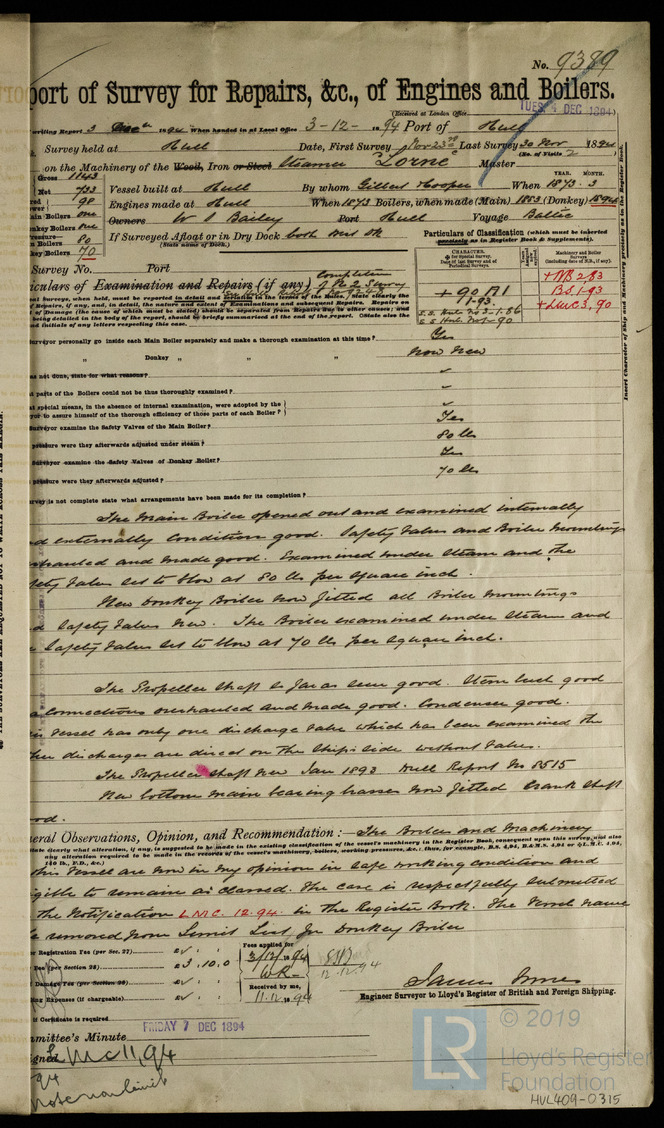 No. 9389
port of Survey for Repairs, &c., of Engines and Boilers.
(Received at London Office
TUES 4 DEC 1894
writing Report 3 Decr 1894 When handed in at Local Office 3-12-1894 Port of Hull
Survey held at Hull Date, First Survey Nov 23rd Last Survey 30 Nov 1894
(No. of Visits 2
on the Machinery of the Wood, Iron or Steel Steamer "Lorne" Master
Gross 1143
Net 733
98
Vessel built at Hull By whom Gilbert Hooper When 1873. 3
YEAR. MONTH.
Engines made at Hull When 1873 Boilers, when made (Main) 1883 (Donkey) 1894
Main Boilers one
Donkey Boilers one
Owners W S Bailey Port Hull Voyage Baltic
80
in Boilers
Donkey Boilers 70
If Surveyed Afloat or in Dry Dock both
(State name of Dock.)
Particulars of Classification (which must be inserted
precisely as in Register Book & Supplements).
CHARACTER.
for Special Survey.
Date of last Survey and of
Periodical Surveys.
Machinery and Boiler
Surveys
(including date of N.B., if any).
+ 90 A1
1.93
+NB 2.83
B.S. 1.93
+LMC 3,90
S.S. Hull No 3-1.86
Insert Character of Ship and Machinery precisely as in the Register Book.
Survey No. Port
iculars of Examination and Repairs (if any) Completion
of No 2 Survey
Surveyor personally go inside each Main Boiler separately and make a thorough examination at this time? Yes
" Donkey " " " Now New
as not done, state for what reasons?
t parts of the Boilers could not be thus thoroughly examined?
at special means, in the absence of internal examination, were adopted by the
yor to assure himself of the thorough efficiency of those parts of each Boiler?
Surveyor examine the Safety Valves of the Main Boiler? Yes
pressure were they afterwards adjusted under steam? 80 lbs
Surveyor examine the Safety Valves of Donkey Boiler? Yes
pressure were they afterwards adjusted? 70 lbs
urvey is not complete state what arrangements have been made for its completion?
The Main Boiler opened out and examined internally
d externally condition good. Safety Valves and Boiler Mountings
verhauled and made good. Examined under steam and the
fety Valves set to blow at 80 lbs per square inch.
New Donkey Boiler now fitted all Boiler Mountings
d Safety Valves New. The Boiler examined under steam and
Safety Valves set to blow at 70 lbs per square inch.
The Propeller shaft so far as seen good. Stern bush good
a connections overhauled and made good. Condenser good.
is Vessel has only one discharge valve which has been examined the
her discharges are direct on the ships side without valves.
The Propeller shaft new Jan 1893 Hull Report No 8515
New bottom main bearing brasses now fitted Crank shaft
od.
eral Observations, Opinion, and Recommendation:— The Boilers and Machinery
this Vessel are now in my opinion in safe working condition and
igible to remain as classed. The case is respectfully submitted
the Notification LMC. 12.94. in the Register Book. The Vessel name
e removed from Limit List for Donkey Boiler
er Registration Fee (per Sec. 27)
Fee (per Section 28) £3.10.0
Damage Fee (per Section 28)
ling Expenses (if chargeable)
Fees applied for
3/12/1894
WR
Received by me,
11.12.1894
12.12.94
James Jones
Engineer Surveyor to Lloyd's Register of British and Foreign Shipping.
if Certificate is required
mmittee's Minute FRIDAY 7 DEC 1894
igned LMC 11,94
94
Note now limit
LR
© 2019
Lloyd's Register
Foundation
HUL409-0315